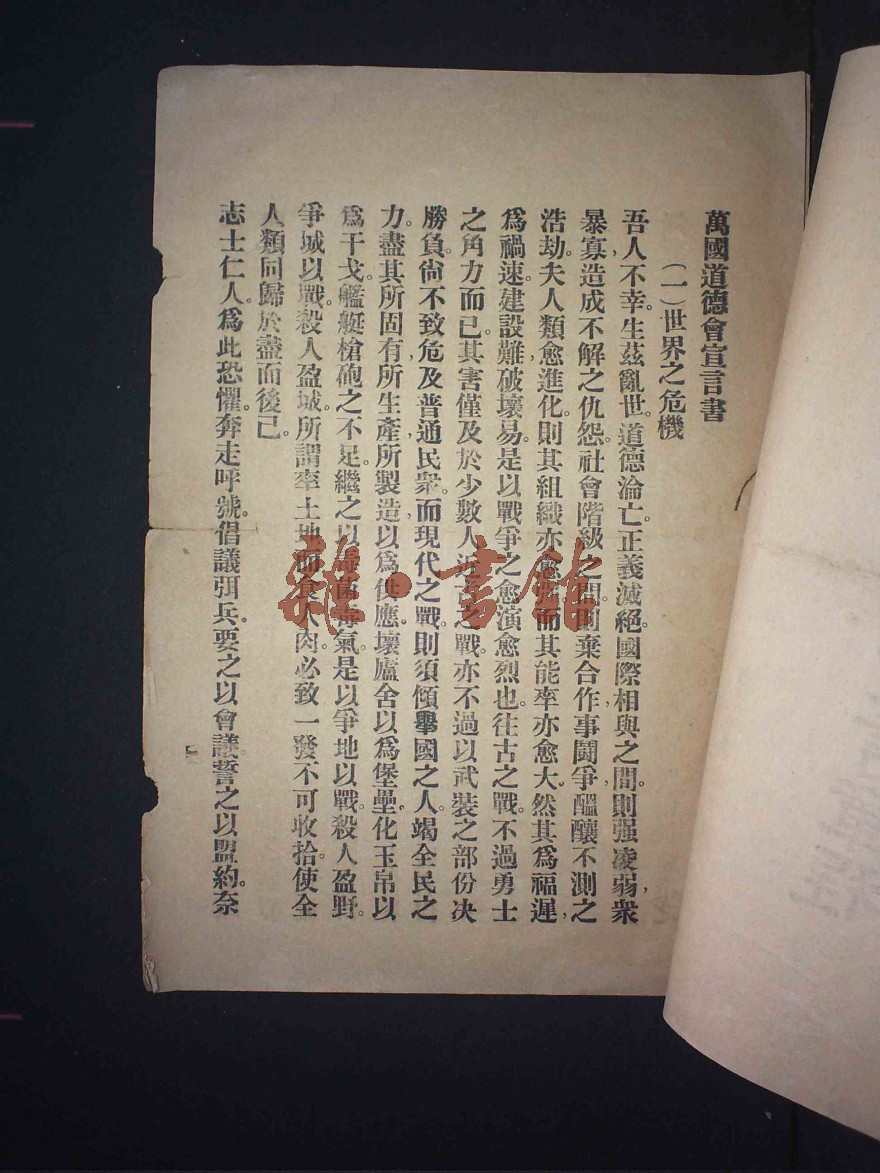 萬國道德會宣言書
(一)世界之危機
吾人不幸生茲亂世。道德淪亡。正義滅絕。國際相與之間。則强凌弱,衆
暴寡,造成不解之仇怨。社會階級之間。則棄合作,事鬪爭,醞釀不測之
浩劫。夫人類愈進化。則其組織亦愈而其能率亦愈大。然其爲福遲,
爲禍速。建設難,破壞易。是以戰爭之愈演愈烈也。往古之戰。不過勇士
之角力而已。其害僅及於少數人。近古之戰。亦不過以武裝之部份决
勝負。尙不致危及普通民衆。而現代之戰。則須傾舉國之人。竭全民之
力。盡其所固有,所生產,所製造,以爲供應。壞廬舍以爲堡壘。化玉帛以
爲干戈。艦艇槍砲之不足。繼之以毒菌毒氣。是以爭地以戰。殺人盈野。
爭城以戰。殺人盈城。所謂率土地而食人肉。必致一發不可收拾。使全
人類同歸於盡而後已。
志士仁人。爲此恐懼。奔走呼號。倡議弭兵。要之以會議。誓之以盟約。奈
一
雜·書館